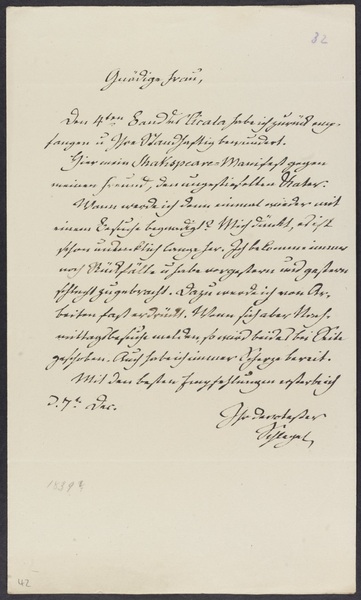 32
Gnädige Frau,
Den 4ten Band des Cicala habe ich zurück emp-
fangen u Ihre Standhaftigkeit bewundert.
Hier mein Shakespeare-Manifest gegen
meinen Freund, den ungestiefelten Kater.
Wann werde ich denn einmal wieder mit
einem Besuche begnadigt? Mich dünkt, es ist
schon undenklich lange her. Ich bekomme immer
noch Rückfälle u habe vorgestern und gestern
schlecht zugebracht. Dazu werde ich von Ar-
beiten fast erdrückt. Wenn sich aber Nach-
mittagsbesuche melden so wird beides bei Seite
geschoben. Auch habe ich immer Scherze bereit.
Mit den besten Empfehlungen ersterbe ich
d. 7t Dec.
Ihr
Schlegel
1839
42